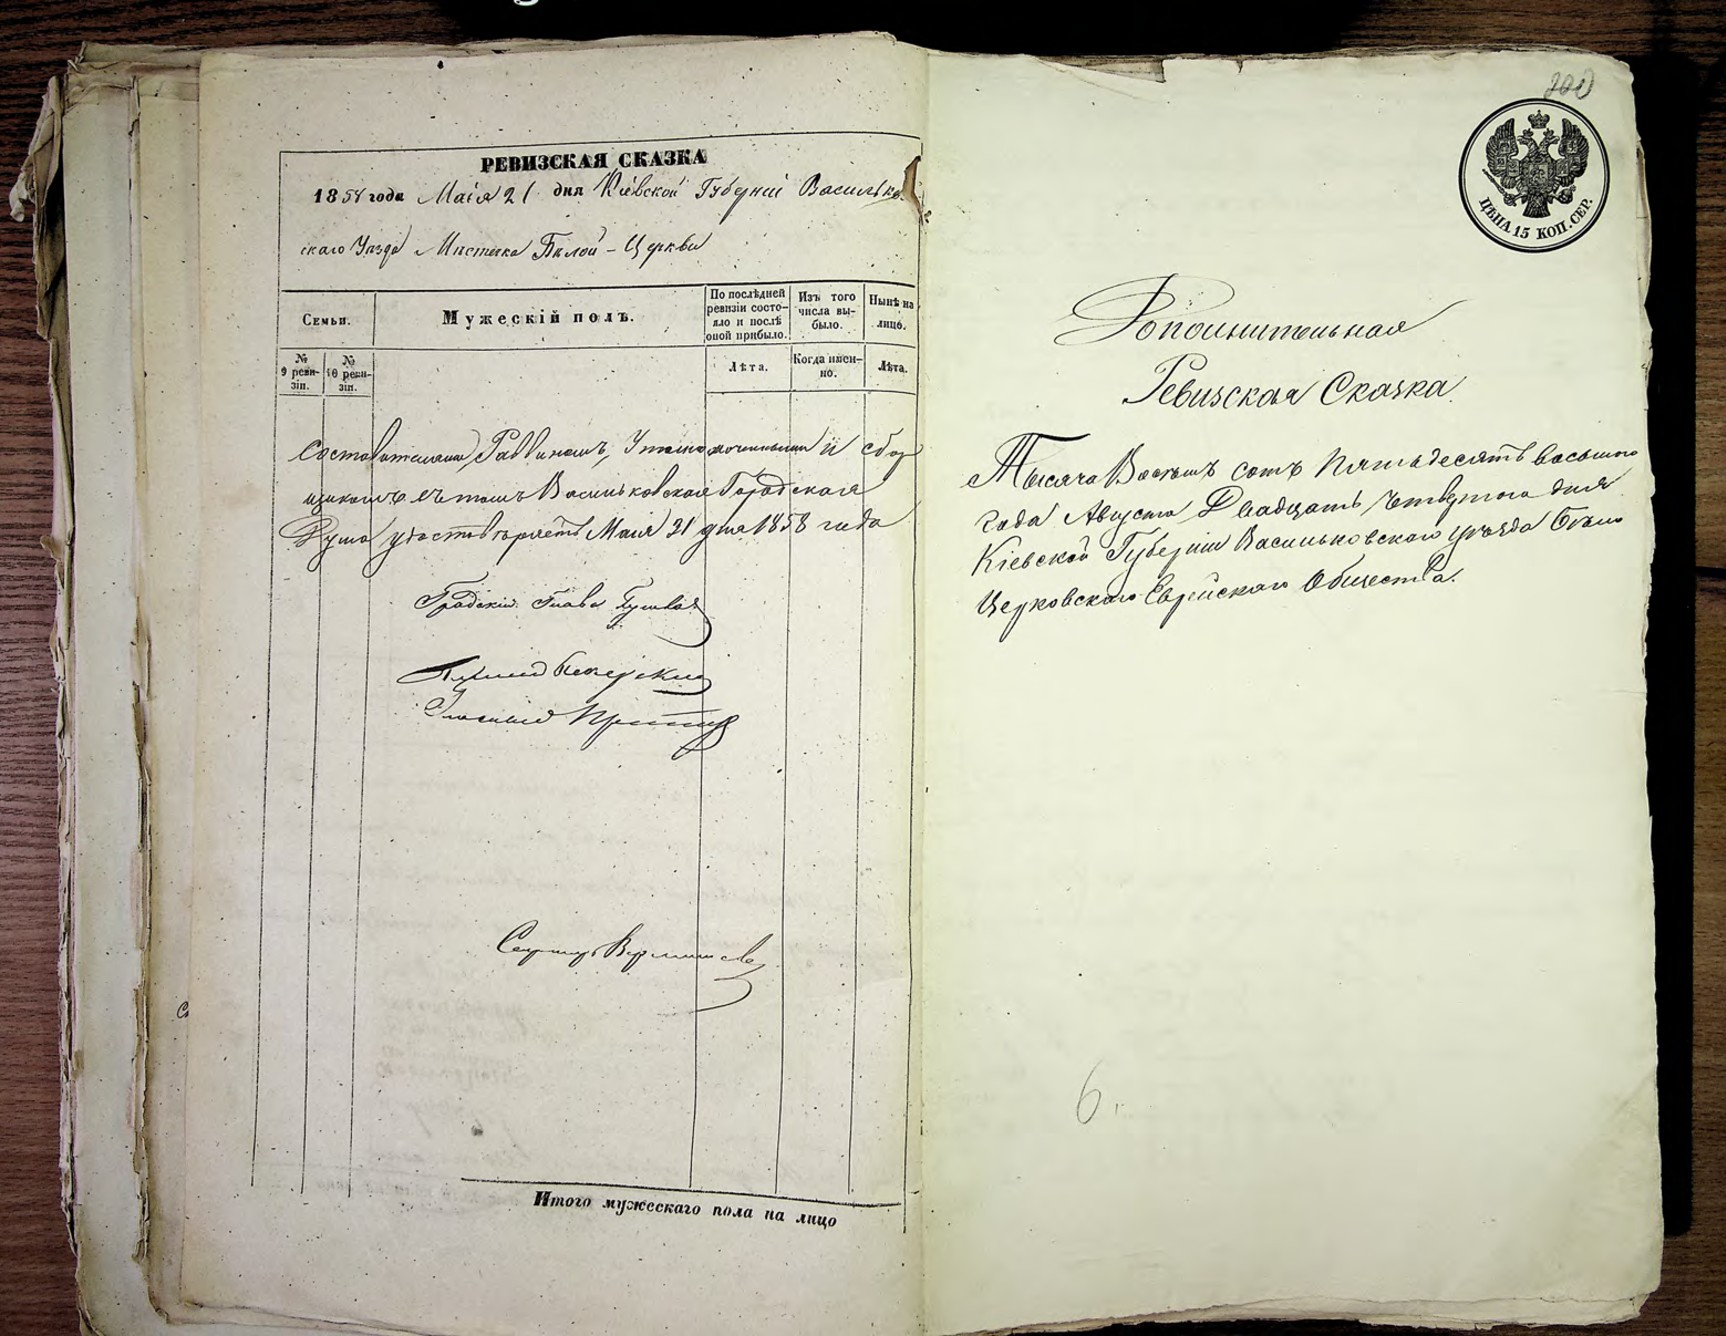 РЕВИЗСКАЯ СКАЗКА
1858 года Маія 21 дня Кіевской Губерніи Василько-
скаго Уѣзда Мѣстечка Бѣлой-Церкви
Семьи.
Мужескій полъ.
По послѣдней ревизіи состо-
яло и послѣ оной прибыло.
Изъ того числа вы-
было.
Нынѣ на лицо.
№ 9 реви-
зіи.
№ 10 реви-
зіи.
Лѣта.
Когда имен-
но.
Лѣта.
Раввиномъ, и сбор
щикомъ въ томъ Васильковская Городская
Дума удостовѣряетъ Маія 31 дня 1858 года
Градскій Глава
Гласный
Секретарь
Итого мужескаго пола на лицо
200
ЦѢНА 15 КОП. СЕР.
Дополнительная
Ревизская Сказка
Тысяча Восемь сотъ Пятьдесятъ восьмого
года Августа Двадцать четвертого дня
Кіевской Губерніи Васильковского уѣзда Бѣло
Церковского Еврейскаго Общества.
6